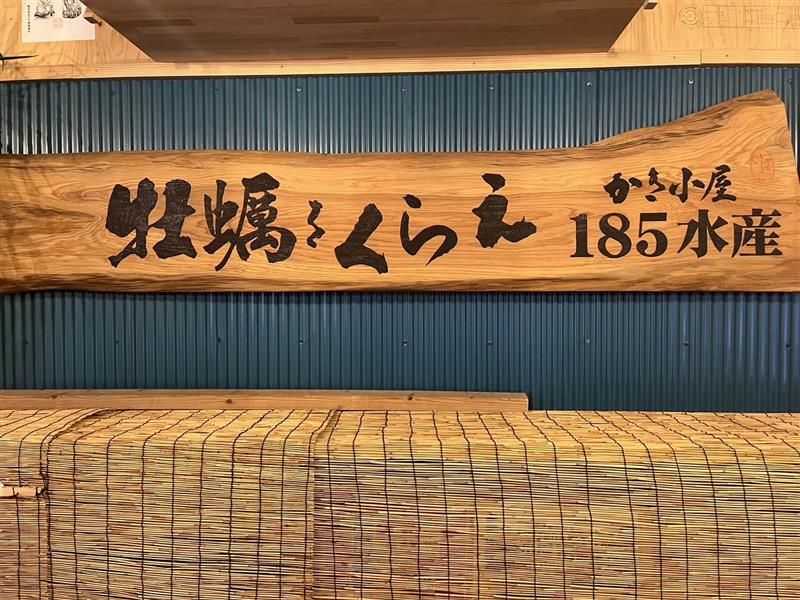 牡蠣をくらえ
かき小屋
185水産